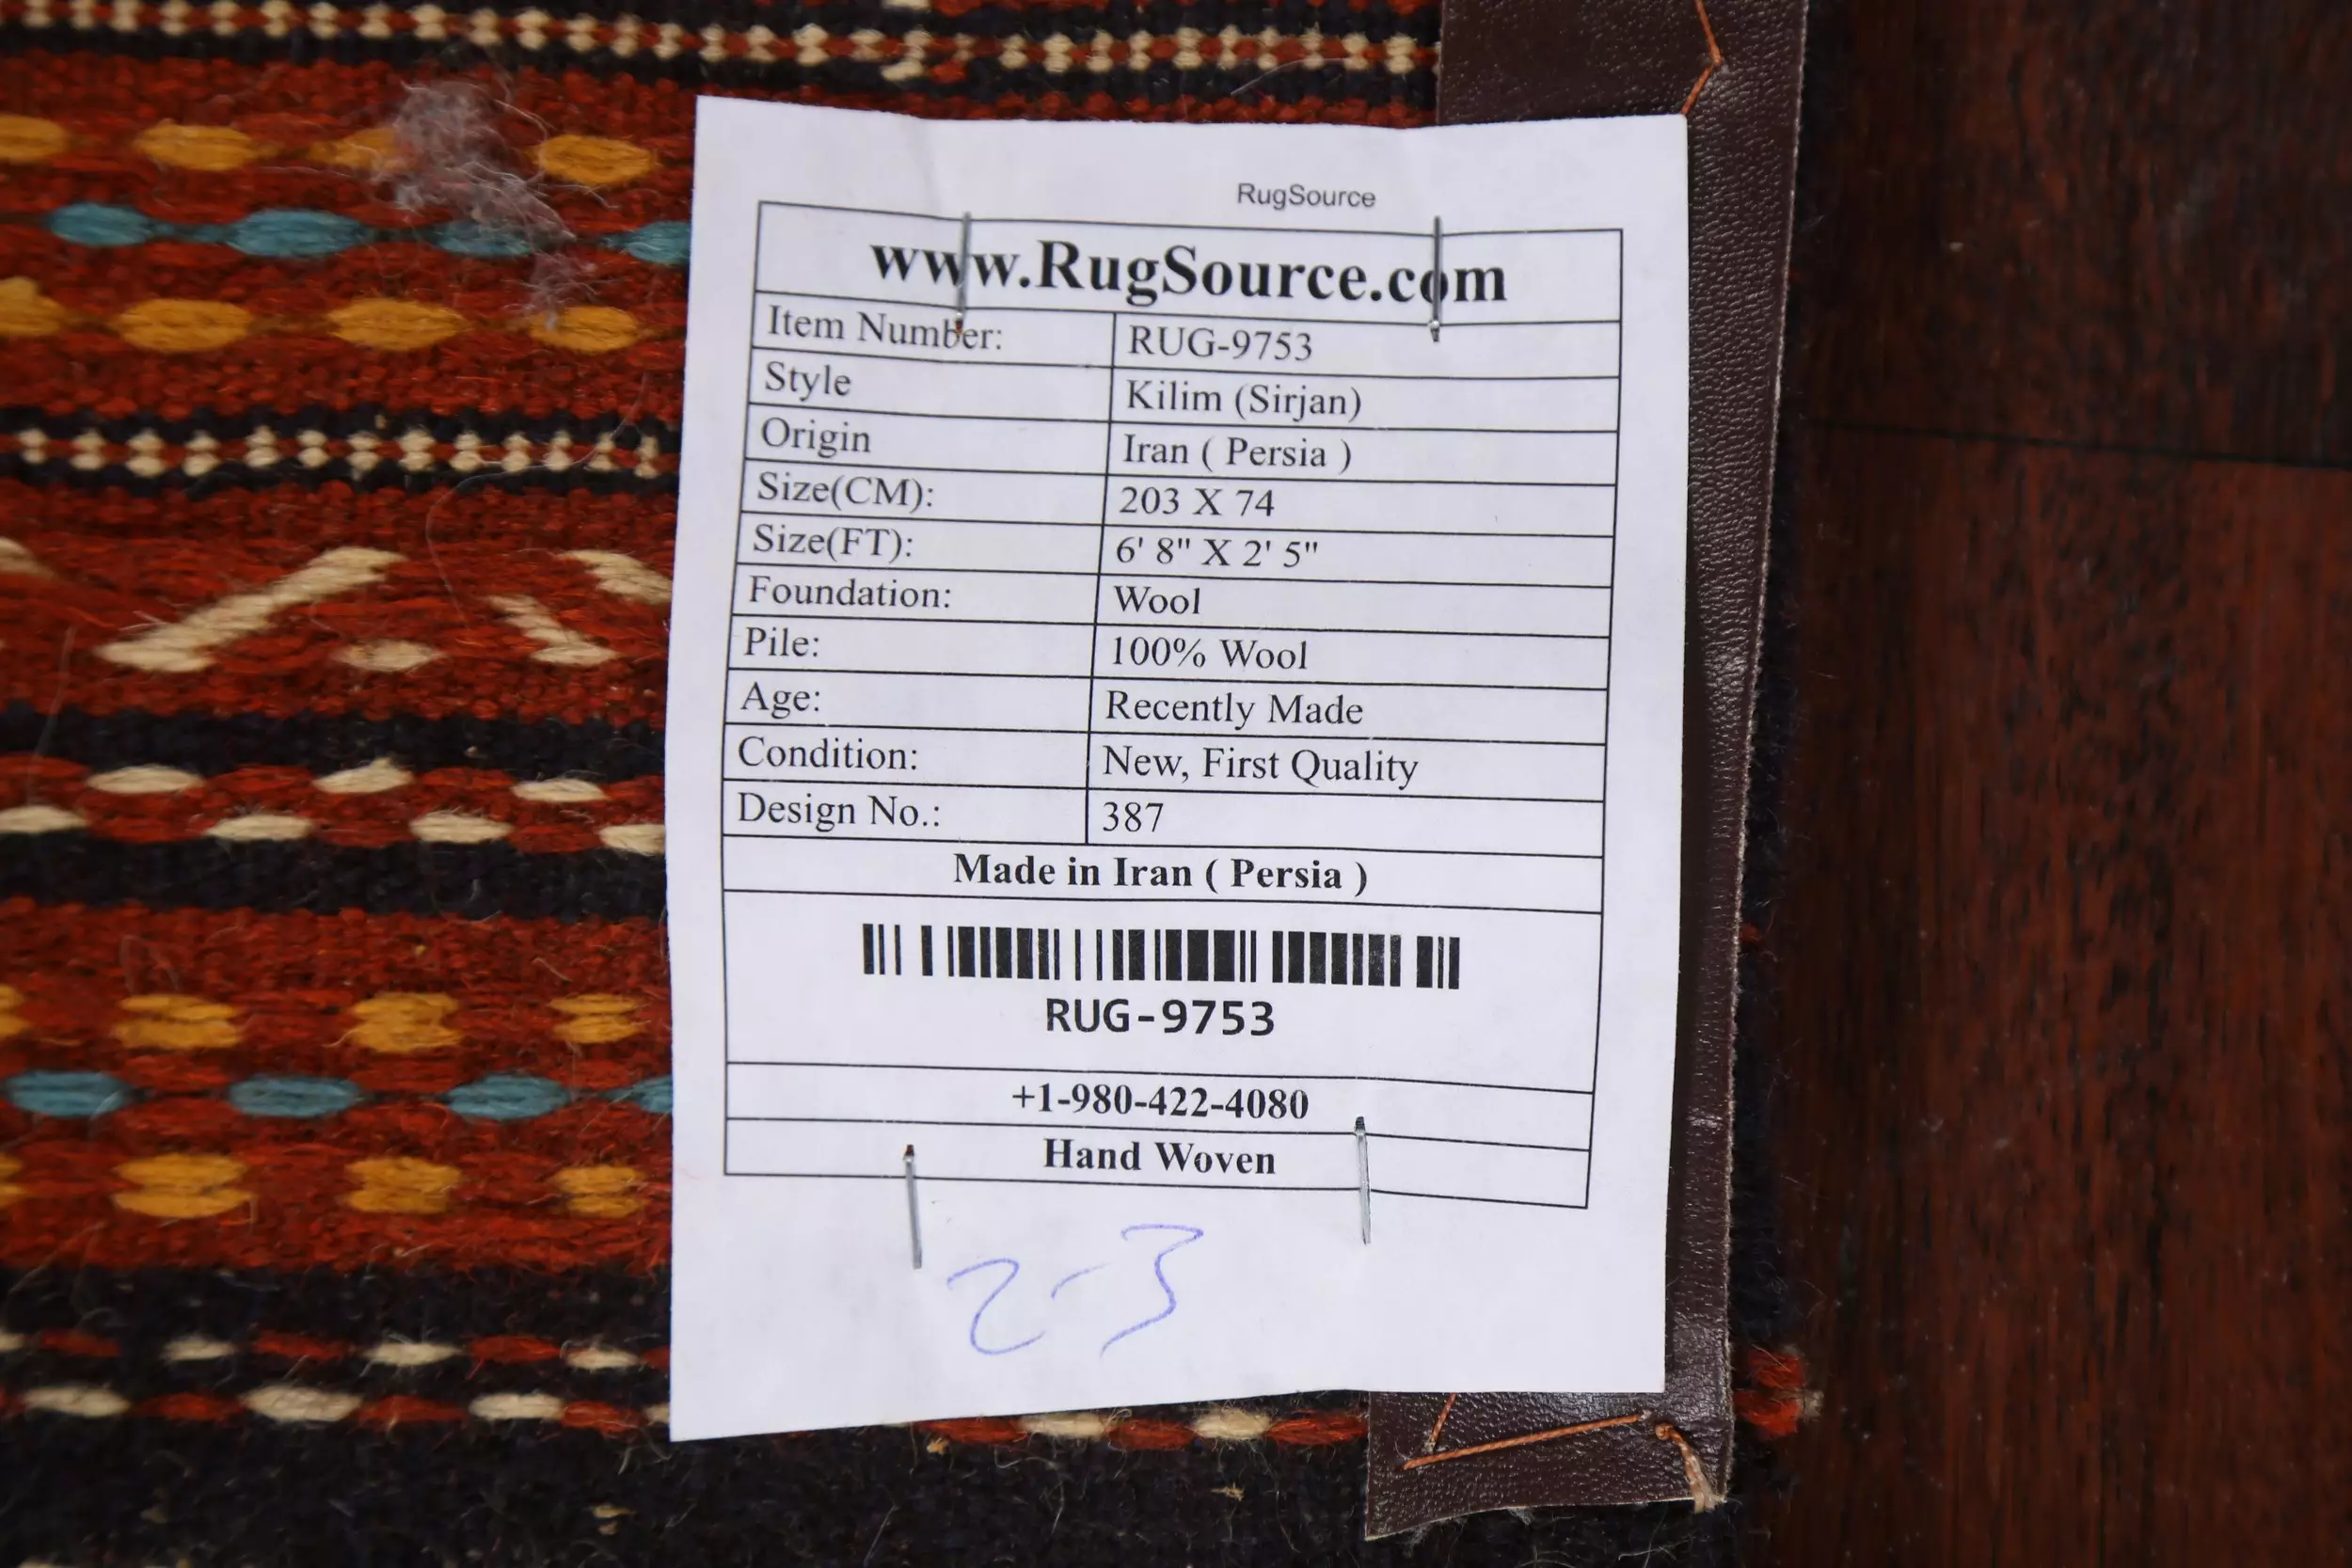 RugSource
www.RugSource.com
Item Number: RUG-9753
Style Kilim (Sirjan)
Origin Iran ( Persia )
Size(CM): 203 X 74
Size(FT): 6' 8" X 2' 5"
Foundation: Wool
Pile: 100% Wool
Age: Recently Made
Condition: New, First Quality
Design No.: 387
Made in Iran ( Persia )
RUG-9753
+1-980-422-4080
Hand Woven
2-3